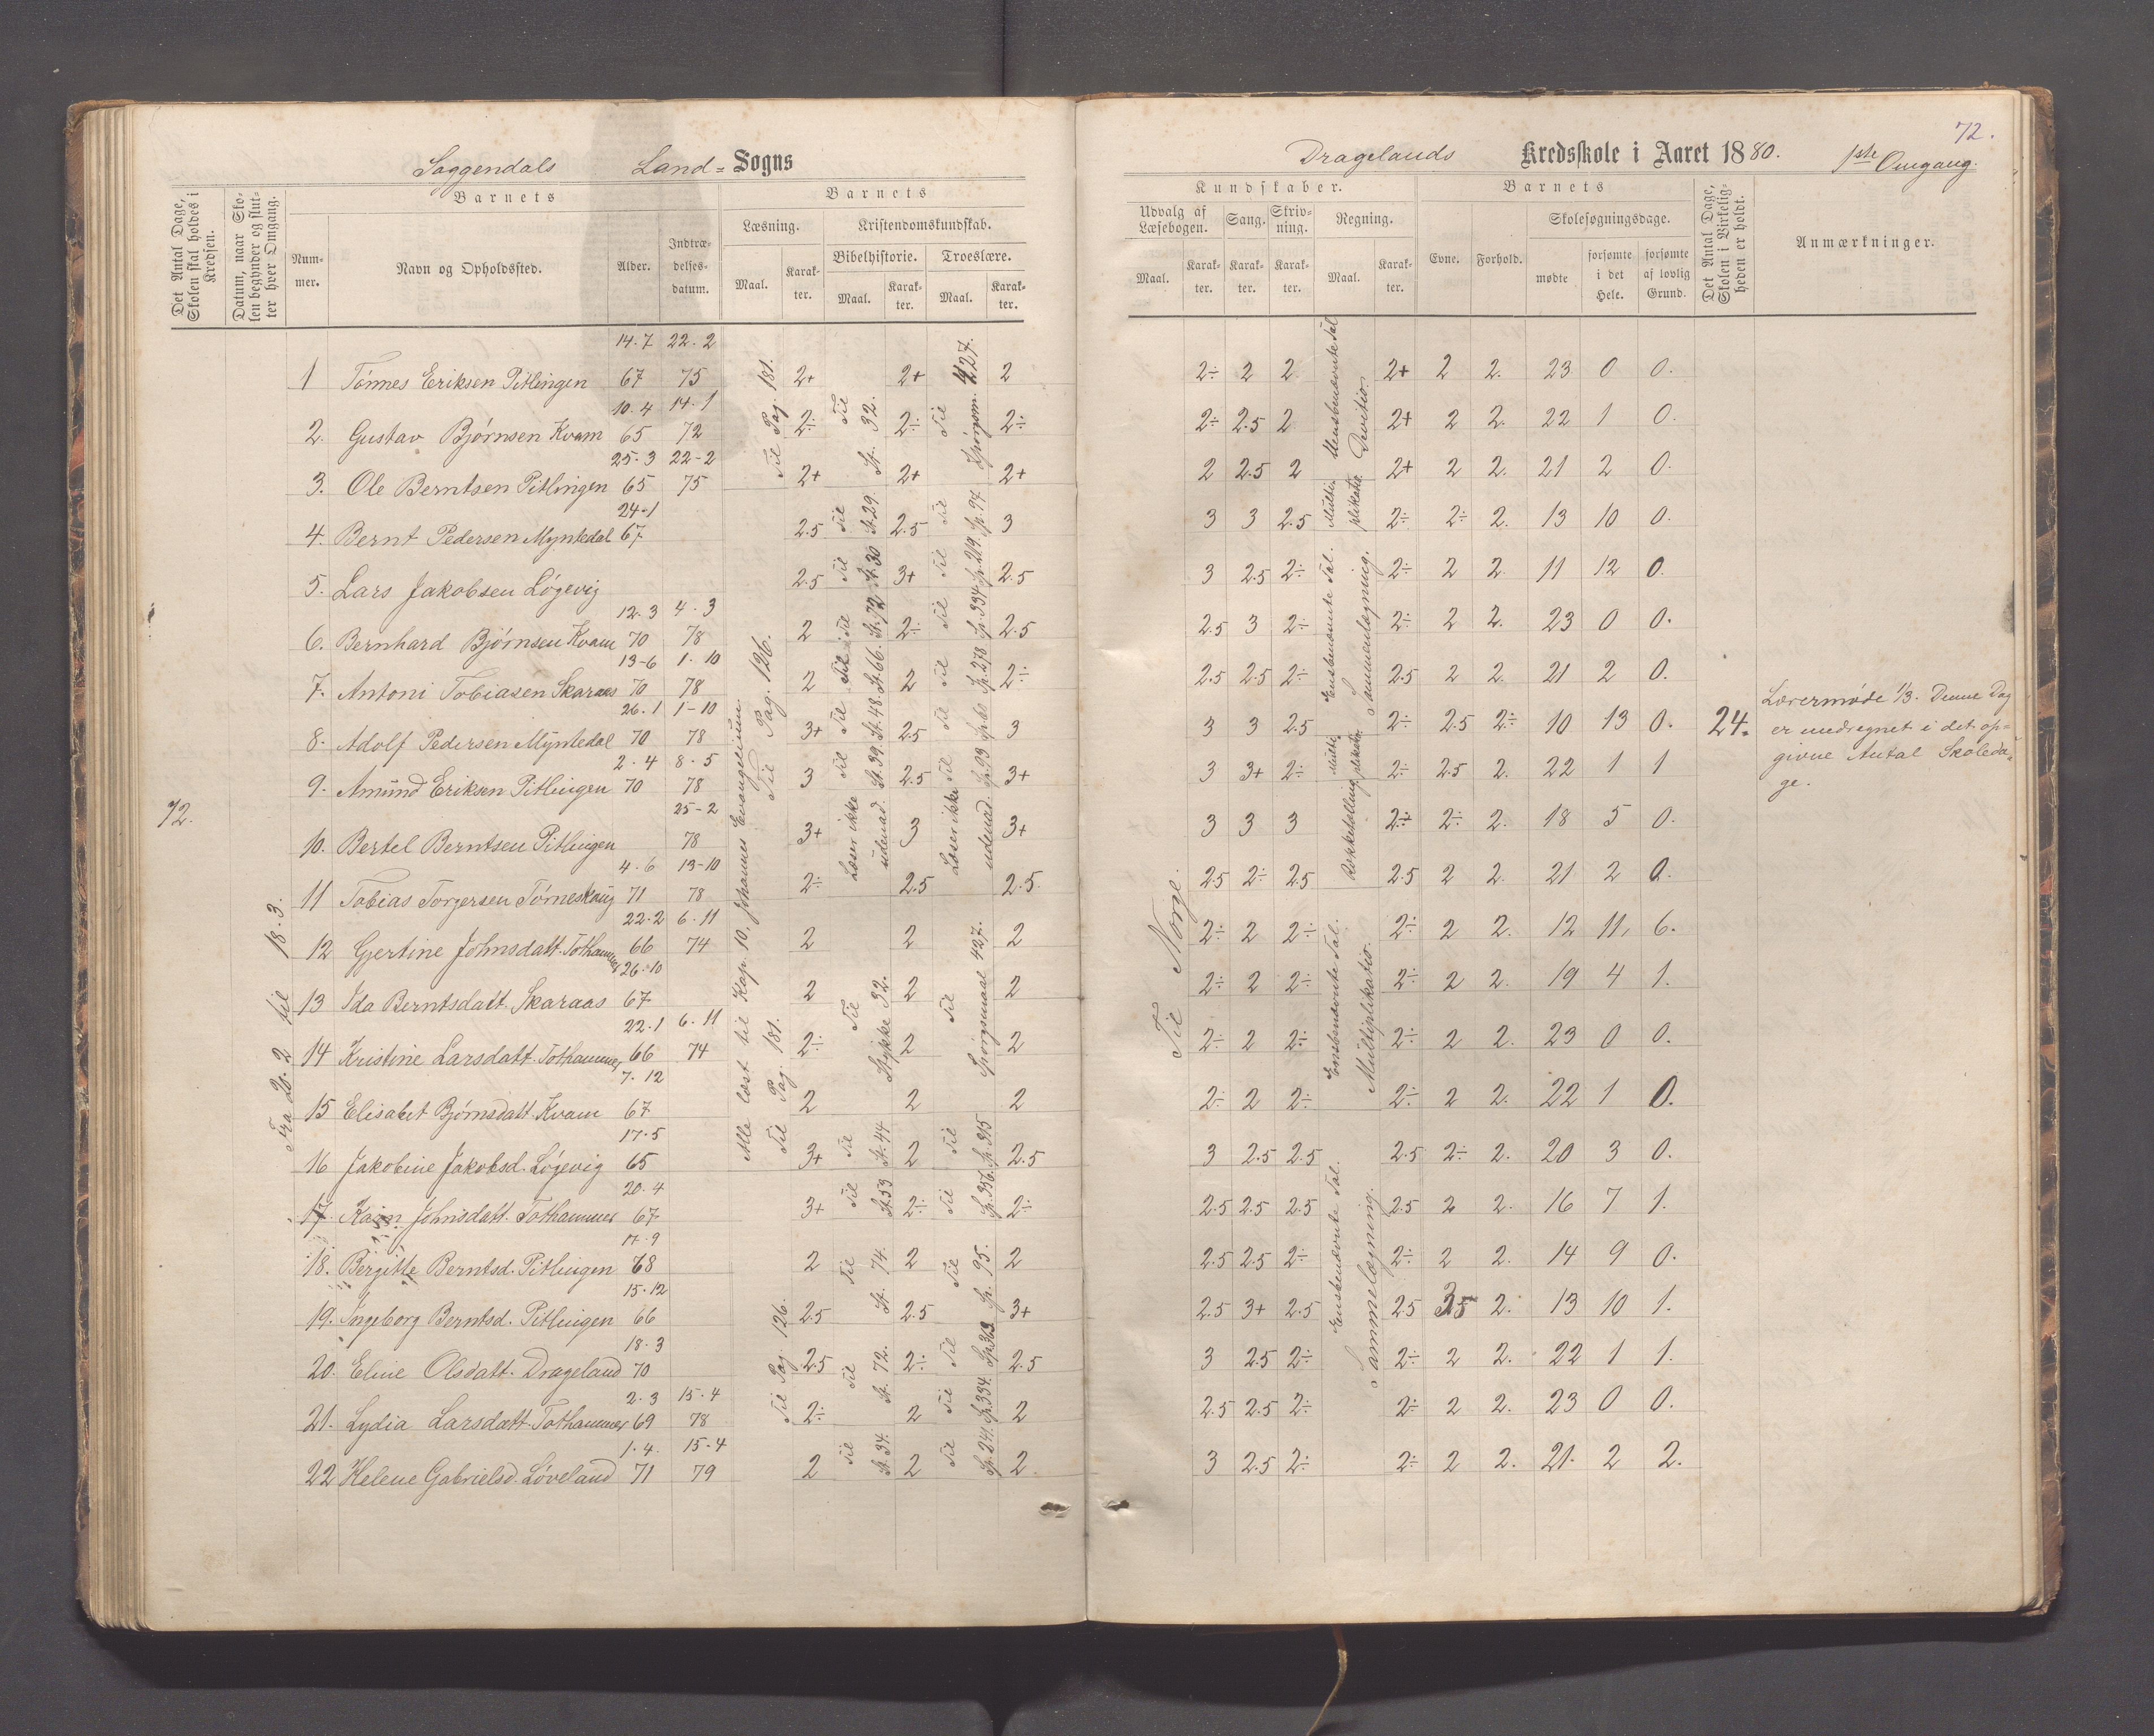 72.
Soggendals Land= Sogns
Dragelands Kredsskole i Aaret 1880. 1ste Omgang.
Det Antal Dage, Skolen skal holdes i Kredsen.
Datum, naar Skolen begynder og slutter hver Omgang.
Barnets
Nummer.
Navn og Opholdssted.
Alder.
Indtrædelsesdatum.
Barnets
Læsning.
Maal.
Karakter.
Kristendomskundskab.
Bibelhistorie.
Maal.
Karakter.
Troeslære.
Maal.
Karakter.
Kundskaber.
Udvalg af Læsebogen.
Maal.
Karakter.
Sang.
Karakter.
Skrivning.
Karakter.
Regning.
Maal.
Karakter.
Barnets
Evne.
Forhold.
Skolesøgningsdage.
mødte
forsømte i det Hele.
forsømte af lovlig Grund.
Det Antal Dage, Skolen i Virkeligheden er holdt.
Anmærkninger.
14.7 22.2
1 Tønnes Eriksen Pitlingen 67 75 2+ 2+ 2 2÷ 2 2 2+ 2 2. 23 0 0.
10.4 14.1
2. Gustav Bjørnsen Kvam 65 72 2÷ 2÷ 2÷ 2÷ 2.5 2 2+ 2 2. 22 1 0.
25.3 22-2
3. Ole Berntsen Pitlingen 65 75 2+ 2+ 2+ 2 2.5 2 2+ 2 2. 21 2 0.
24.1
4. Bernt Pedersen Myntedal 67 2.5 2.5 3 3 3 2.5 2÷ 2÷ 2. 13 10 0.
5. Lars Jakobsen Løgevig 2.5 3+ 2.5 3 2.5 2÷ 2÷ 2 2. 11 12 0.
12.3 4.3
6. Bernhard Bjørnsen Kvam 70 78 2 2÷ 2.5 2.5 3 2÷ 2÷ 2 2. 23 0 0.
13-6 1.10
7. Antoni Tobiasen Skaraas 70 78 2 2 2÷ 2.5 2.5 2÷ 2.5 2 2. 21 2 0.
26.1 1-10
8. Adolf Pedersen Myntedal 70 78 3+ 2.5 3 3 3 2.5 2÷ 2.5 2÷ 10 13 0.
2.4 8.5
9. Amund Eriksen Pitlingen 70 78 3 2.5 3+ 3 3+ 2÷ 2÷ 2.5 2. 22 1 1
25-2
10. Bertel Berntsen Pitlingen 78 3+ 3 3+ 3 3 3 2÷ 2÷ 2. 18 5 0.
4.6 13-10
11 Tobias Torgersen Tørneskaug 71 78 2÷ 2.5 2.5. 2.5 2÷ 2.5 2.5 2 2. 21 2 0.
22.2 6.11
12 Gjertine Johnsdatt. Tothammer 66 74 2 2 2 2÷ 2 2÷ 2÷ 2 2. 12 11, 6.
26.10
13 Ida Berntsdatt. Skaraas 67 2 2 2 2÷ 2 2÷ 2÷ 2 2. 19 4 1.
22.1 6.11
14 Kristine Larsdatt. Tothammer 66 74 2÷ 2 2 2÷ 2 2÷ 2÷ 2 2. 23 0 0.
7.12
15 Elisabet Bjørnsdatt. Kvam 67 2 2 2 2÷ 2 2÷ 2÷ 2 2. 22 1 0.
17.5
16 Jakobine Jakobsd. Løgevig 65 3+ 2 2.5 3 2.5 2.5 2.5 2÷ 2. 20 3 0.
20.4
17. Karin Johnsdatt. Tothammer 67 3+ 2÷ 2÷ 2.5 2.5 2.5 2.5 2 2. 16 7 1.
17.9
18. Bergitte Berntsd. Pitlingen 68 2 2 2 2.5 2.5 2÷ 2÷ 2 2. 14 9 0.
15.12
19. Ingeborg Berntsd. Pitlingen 66 2.5 2.5 3+ 2.5 3+ 2.5 2.5 2. 13 10 1.
18.3
20. Eline Olsdatt. Drageland 70 2.5 2÷ 2.5 3 2.5 2÷ 2÷ 2 2. 22 1 1.
2.3 15.4
21. Lydia Larsdatt. Tothammer 69 78 2÷ 2 2 2.5 2.5 2÷ 2÷ 2 2. 23 0 0.
1.4. 15.4
22 Helene Gabrielsd. Løveland 71 79 2 2 2. 3 2.5 2÷ 2÷ 2 2. 21. 2 2.
72.
Fra 20.2 til 18.3.
Alle læst til Kap. 10, Johannes Evangelium.
Til Pag. 181.
Til Pag. 126.
Til Pag. 181.
Til Pag. 126.
Til St. 32.
Til St. 29.
Til St. 30
Til St. 72
Til St. 66.
Til St. 48.
Til St. 39.
Læser ikke udenad.
Til Stykke 32.
Til St. 44
Til St. 53
Til St. 74.
Til St. 72.
Til St. 34.
Til Spørgsm. 427.
Til Sp. 94
Til Sp. 219.
Til Sp. 334
Til Sp. 278
Til Sp. 93
Læser ikke udenad.
Til Spørgsmaal 427.
Til Sp. 315
Til Sp. 356.
Til Sp. 95.
Til Sp. 363
Til Sp. 334.
Til Sp. 241.
Til Norge.
Uensbenævnte Tal Division.
Multiplikatio.
Ensbenævnte Tal. Sammenlægning.
Multiplikatio.
Rækketælling.
Ensbenævnte Tal. Multiplikatio.
Ensbenævnte Tal. Sammelægning.
24.
Lærermøde 1/3. Denne Dag
er medregnet i det op=
givne Antal Skoleda=
ge.